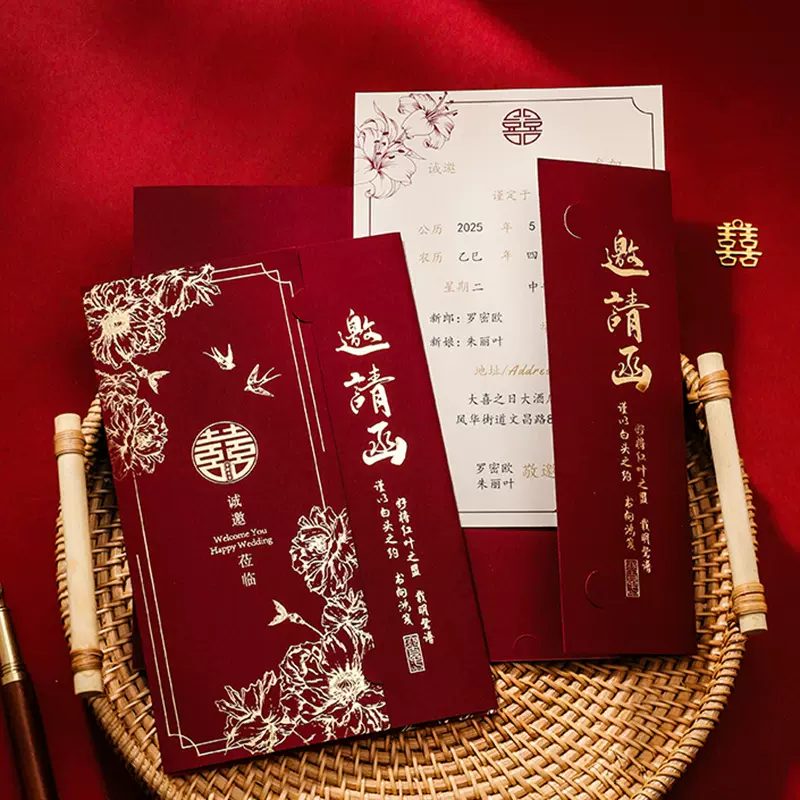 囍
诚邀
Welcome You
Happy Wedding
莅临
邀請函
谨以白头之约
书向鸿笺
好将红叶之盟
载明鸳谱
囍
诚邀
谨定于
公历 2025 年 5
农历 乙巳 年 四
星期二 中
新郎：罗密欧
新娘：朱丽叶
地址/Addre
大喜之日大酒
风华街道文昌路8
罗密欧
朱丽叶
敬邀
邀請函
谨以白头之约
书向鸿笺
好将红叶之盟
载明鸳谱
囍